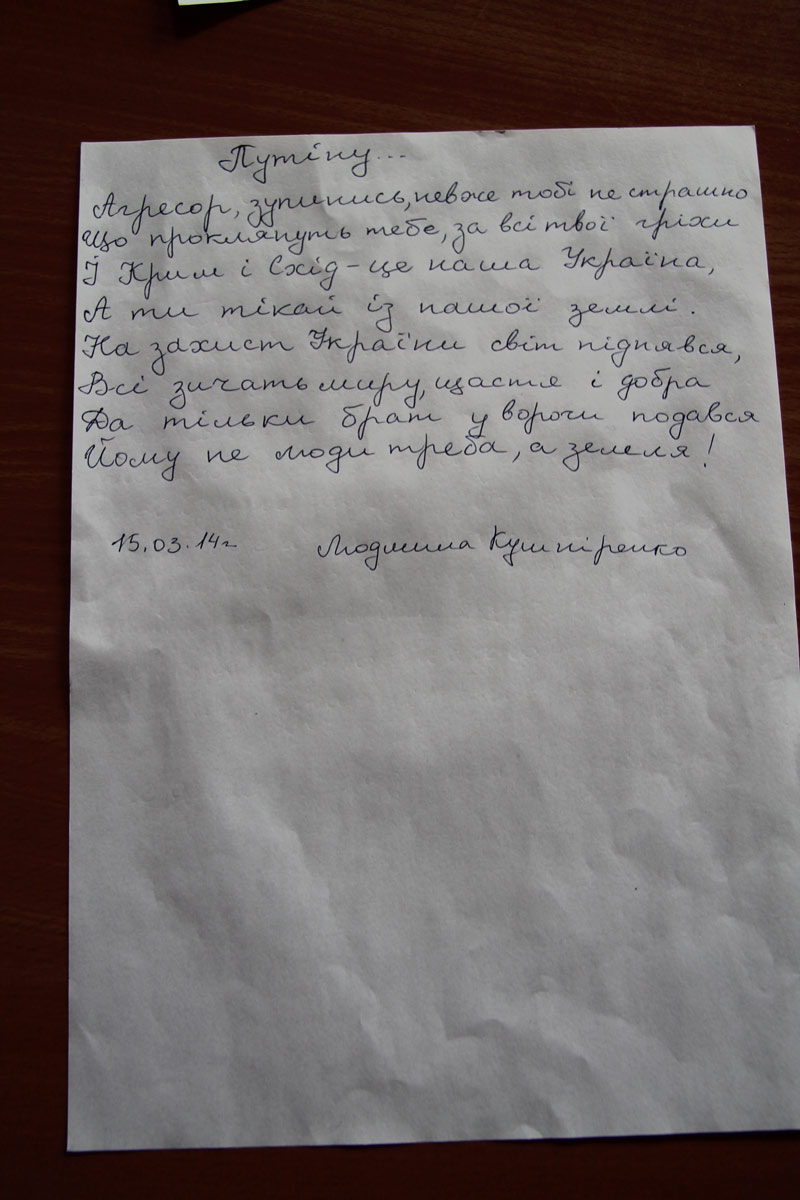 Путіну...
Агресор, зупинись, невже тобі не страшно
Що проклянуть тебе, за всі твої гріхи
Й Крим і Схід - це наша Україна,
А ти тікай із нашої землі.
На захист України світ піднявся,
Всі зичать миру, щастя і добра
Да тільки брат у ворочи подався
Йому не люди треба, а земля!
15.03.14г Людмила Кушніренко